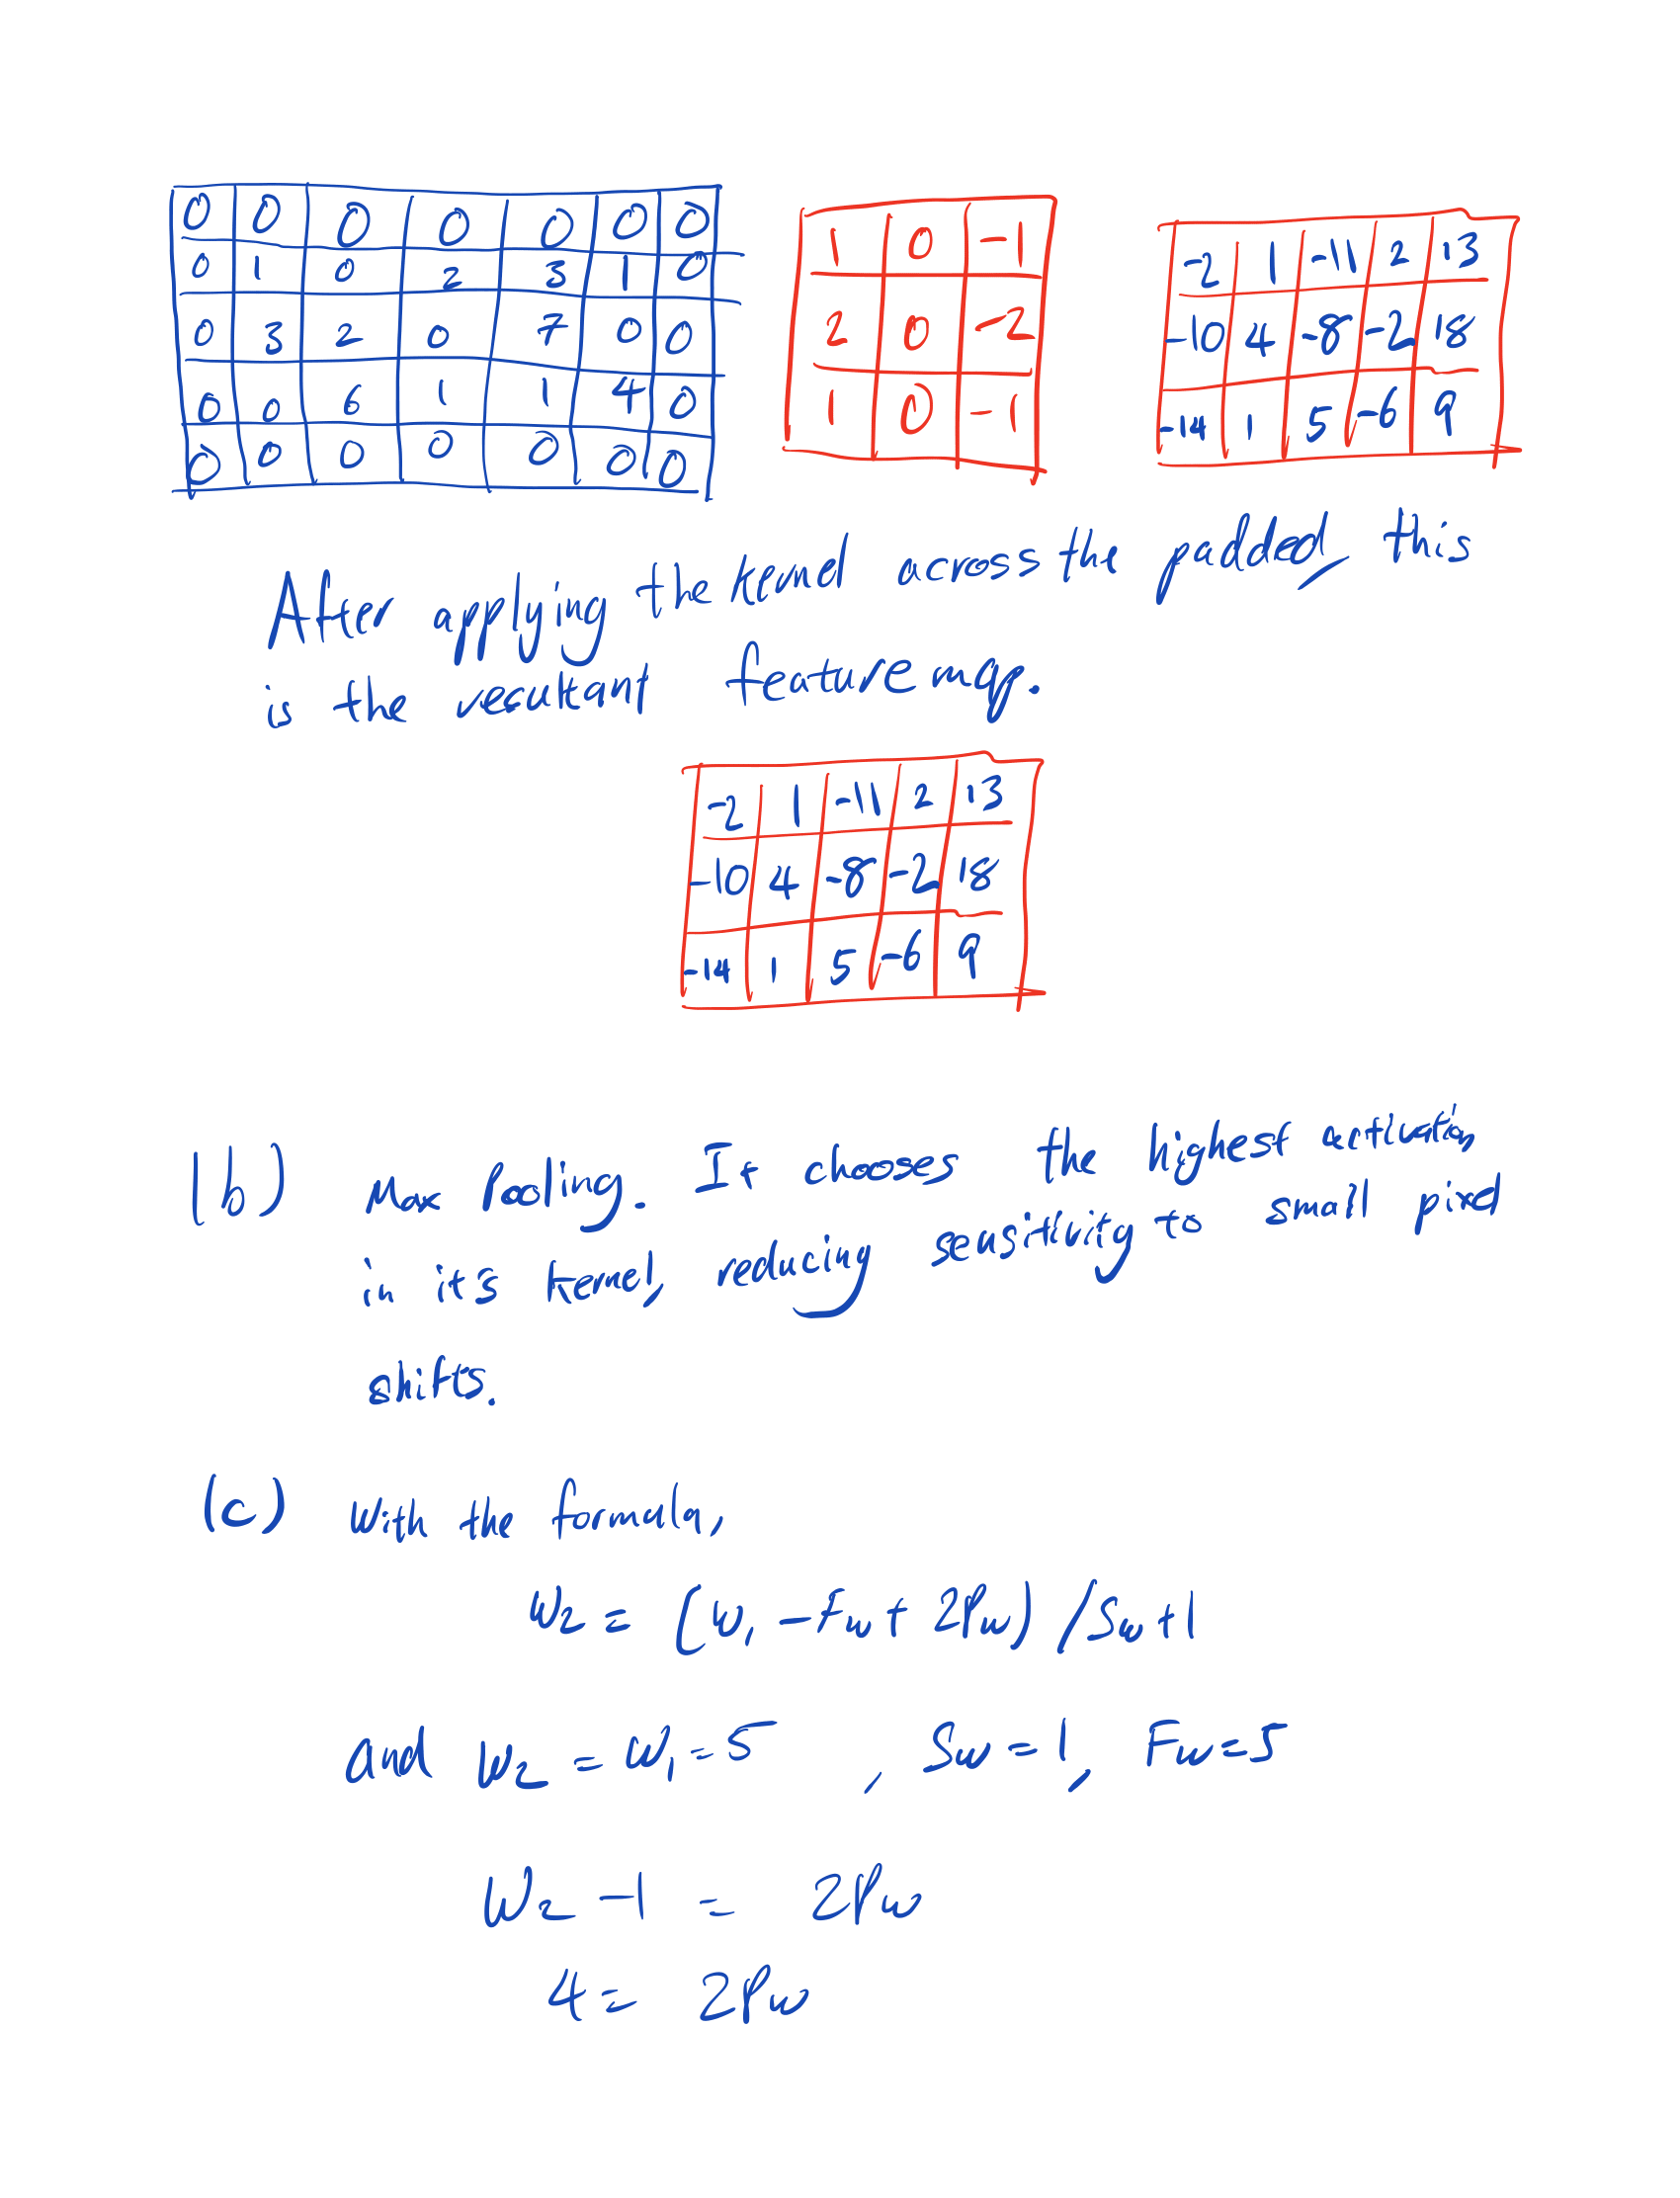 0 0 0 0 0 0 0
0 1 0 2 3 1 0
0 3 2 0 7 0 0
0 0 6 1 1 4 0
0 0 0 0 0 0 0
1 0 -1
2 0 -2
1 0 -1
-2 1 -11 2 13
-10 4 -8 -2 18
-14 1 5 -6 9
After applying the kernel across the padded, this
is the resultant feature map.
-2 1 -11 2 13
-10 4 -8 -2 18
-14 1 5 -6 9
1b) Max Pooling. It chooses the highest activation
in it's kernel, reducing sensitivity to small pixel
shifts.
(c) With the formula,
W₂ = (W₁ - Fw + 2Pw) / Sw + 1
and W₂ = W₁ = 5 , Sw = 1, Fw = 5
W₂ - 1 = 2Pw
4 = 2Pw